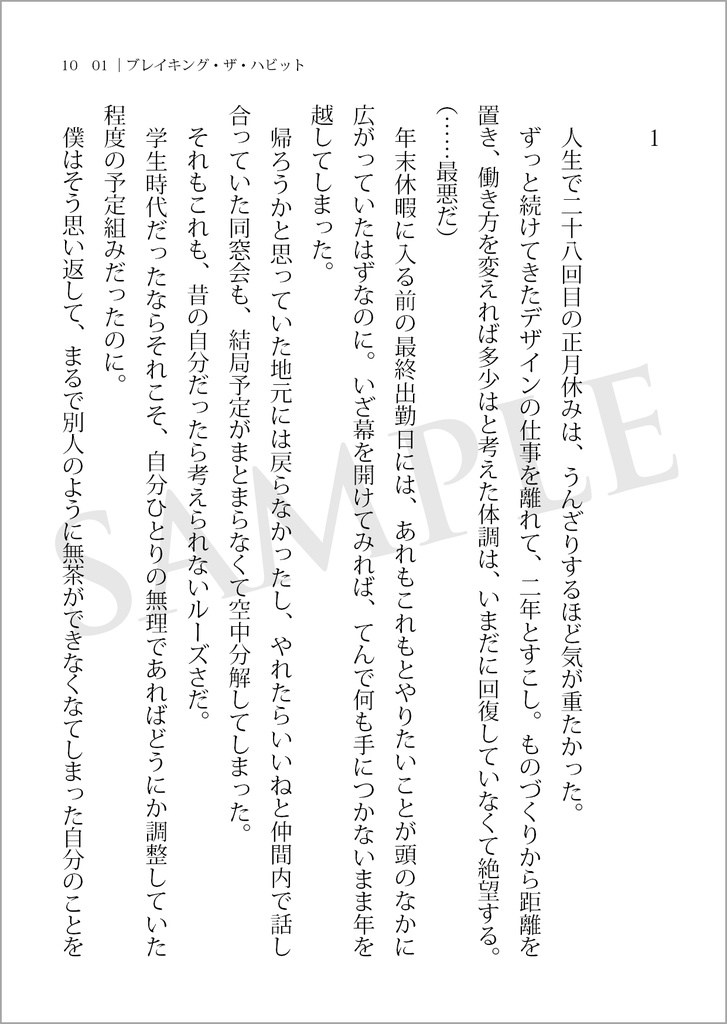 10 01｜ブレイキング・ザ・ハビット
1
人生で二十八回目の正月休みは、うんざりするほど気が重たかった。
ずっと続けてきたデザインの仕事を離れて、二年とすこし。ものづくりから距離を
置き、働き方を変えれば多少はと考えた体調は、いまだに回復していなくて絶望する。
(……最悪だ)
年末休暇に入る前の最終出勤日には、あれもこれもとやりたいことが頭のなかに
広がっていたはずなのに。いざ幕を開けてみれば、てんで何も手につかないまま年を
越してしまった。
帰ろうかと思っていた地元には戻らなかったし、やれたらいいねと仲間内で話し
合っていた同窓会も、結局予定がまとまらなくて空中分解してしまった。
それもこれも、昔の自分だったら考えられないルーズさだ。
学生時代だったならそれこそ、自分ひとりの無理であればどうにか調整していた
程度の予定組みだったのに。
僕はそう思い返して、まるで別人のように無茶ができなくなてしまった自分のことを
SAMPLE